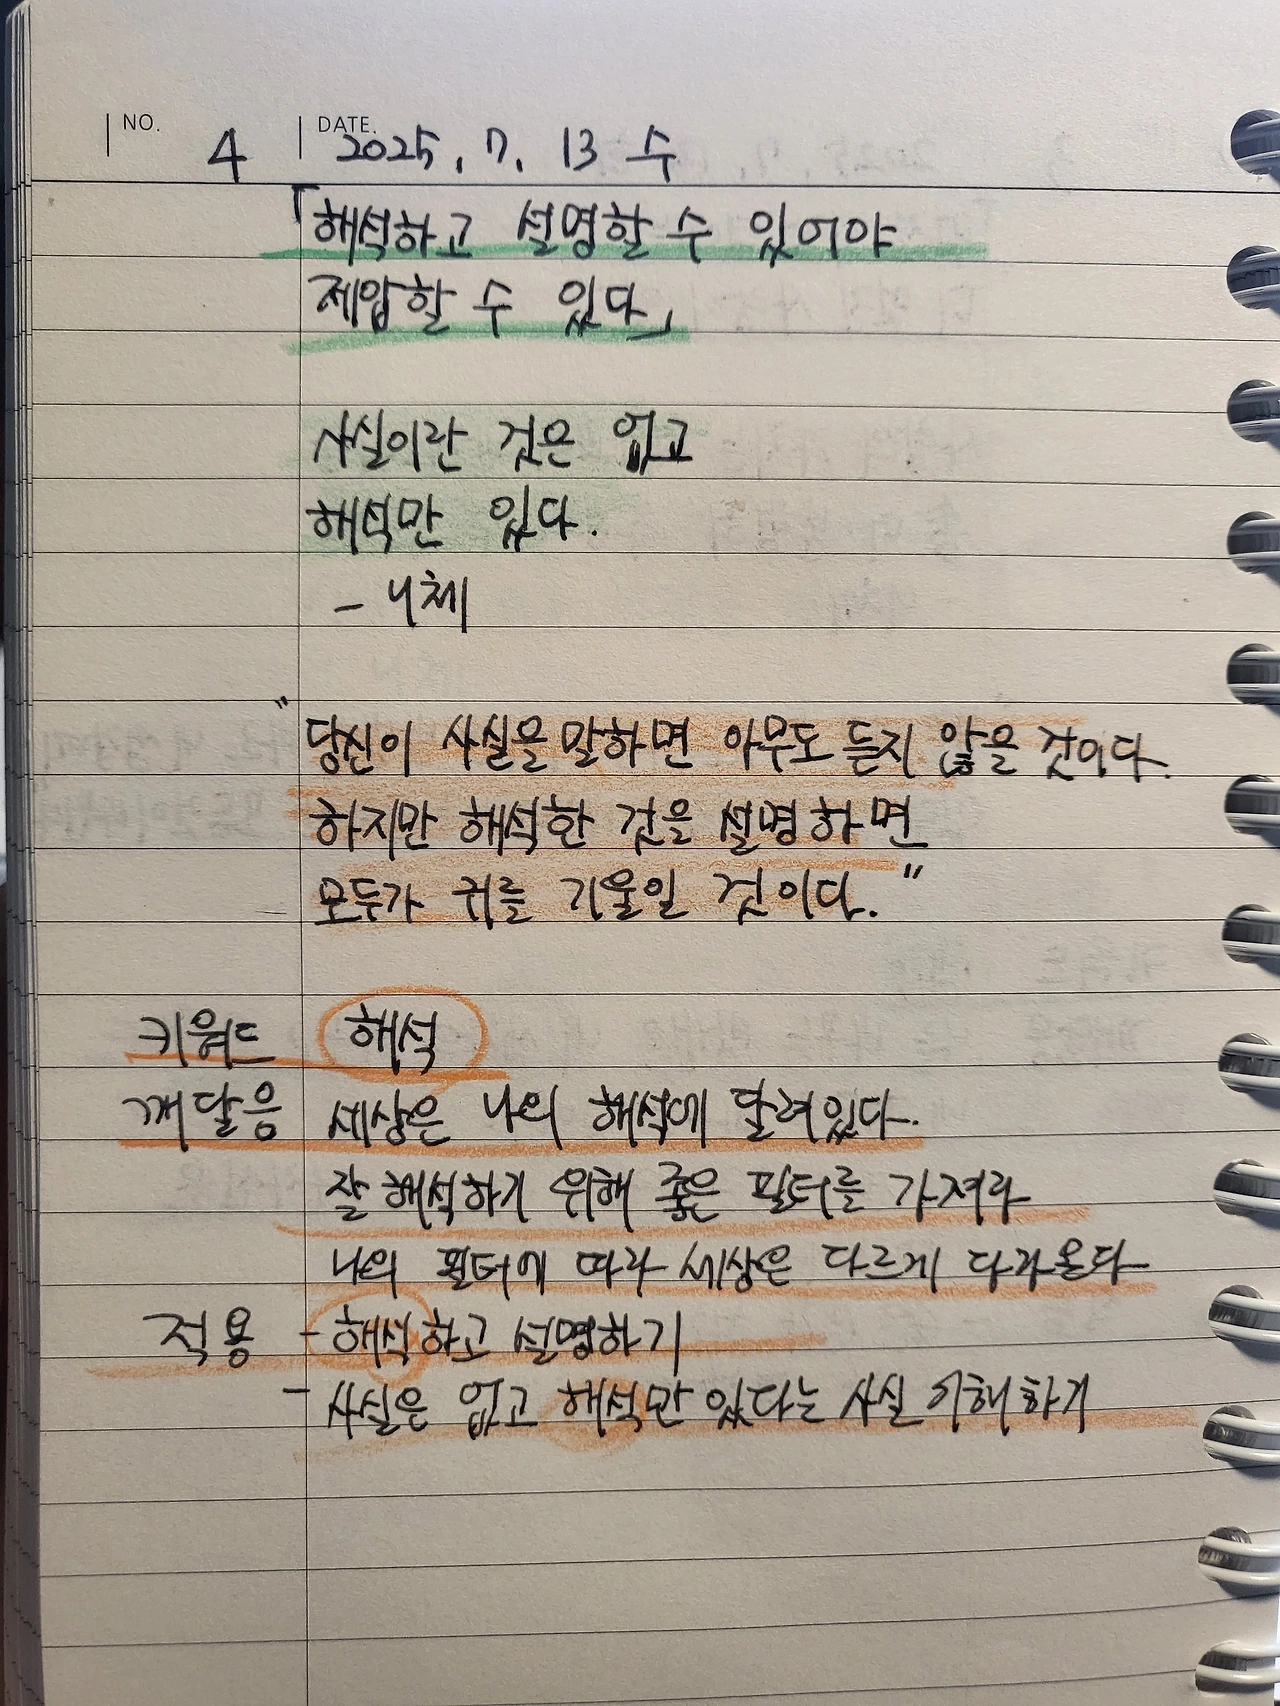 NO. 4 DATE. 2025. 7. 13 수
「해석하고 설명할 수 있어야
제압할 수 있다」
사실이란 것은 없고
해석만 있다.
- 니체
"당신이 사실을 말하면 아무도 듣지 않을 것이다.
하지만 해석한 것을 설명하면
모두가 귀를 기울일 것이다."
키워드 해석
깨달음 세상은 나의 해석에 달려있다.
잘 해석하기 위해 좋은 필터를 가져라
나의 필터에 따라 세상은 다르게 다가온다
적용 - 해석하고 설명하기
- 사실은 없고 해석만 있다는 사실 이해하기